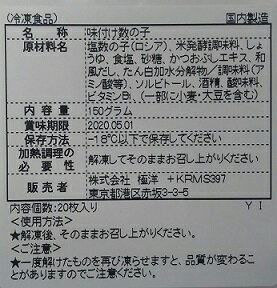 (冷凍食品) 国内製造
名称 味付け数の子
原材料名 塩数の子(ロシア)、米発酵調味料、しょ
うゆ、食塩、砂糖、かつおぶしエキス、和
風だし、たん白加水分解物/調味料(ア
ミノ酸等)、ソルビトール、酒精、酸味料、
ビタミンB₁、(一部に小麦・大豆を含む)
内容量 150グラム
賞味期限 2020.05.01
保存方法 -18℃以下で保存してください
加熱調理の
必要性 解凍してそのままお召し上がりください。
販売者 株式会社 極洋 +KRMS397
東京都港区赤坂3-3-5
内容個数:20枚入り YI
<使用方法>
★解凍後、そのままお召し上がりください。
<ご注意>
★一度解けたものを再び凍らせますと、品質が変わるこ
とがありますのでご注意ください。